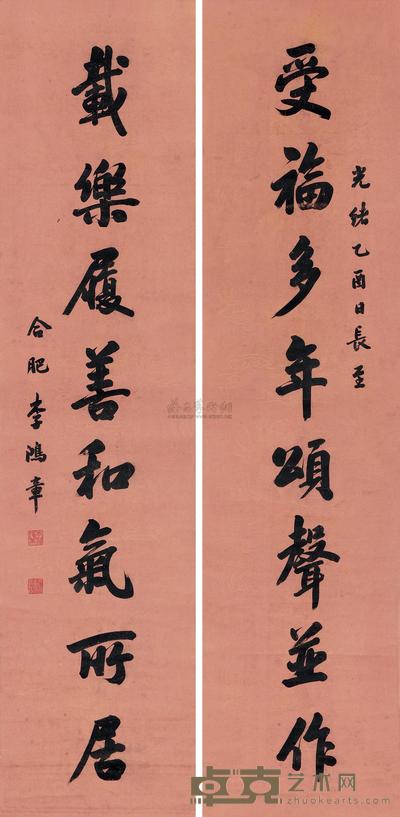 光緒乙酉日長至
受福多年頌聲並作
載樂履善和氣所居
合肥李鴻章
卓克艺术网
zhuokearts.com